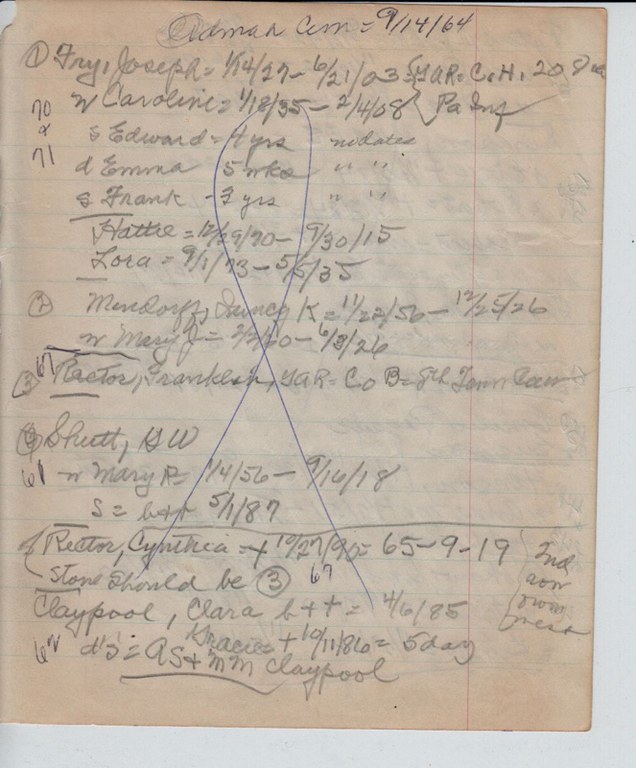 Odman Cem = 9/14/64
① Fry, Joseph = 1/14/27 - 6/21/03 = GAR = Co. H, 208
70 w Caroline = 1/18/35 - 2/4/08 Pa Inf
& s Edward = 4 yrs no dates
71 d Emma 5 wks " "
s Frank - 3 yrs " "
Hattie = 12/29/70 - 9/30/15
Lora = 9/1/73 - 5/5/35
② Quincy K = 11/22/56 - 12/25/26
w Mary J = - 6/3/26
67
③ Rector, Franklin, GAR = Co B = 8th Tenn Cav
④ Shutt, G W
61 w Mary R = 1/4/56 - 9/16/18
S = b++ 5/1/87
Rector, Cynthia - + 10/27/90 = 65-9-19 2nd
Stone should be ③ 67 row
Claypool, Clara b++ = 4/6/85 from west
Gracie = + 10/11/86 = 5 day
62 d's = AS + MM Claypool